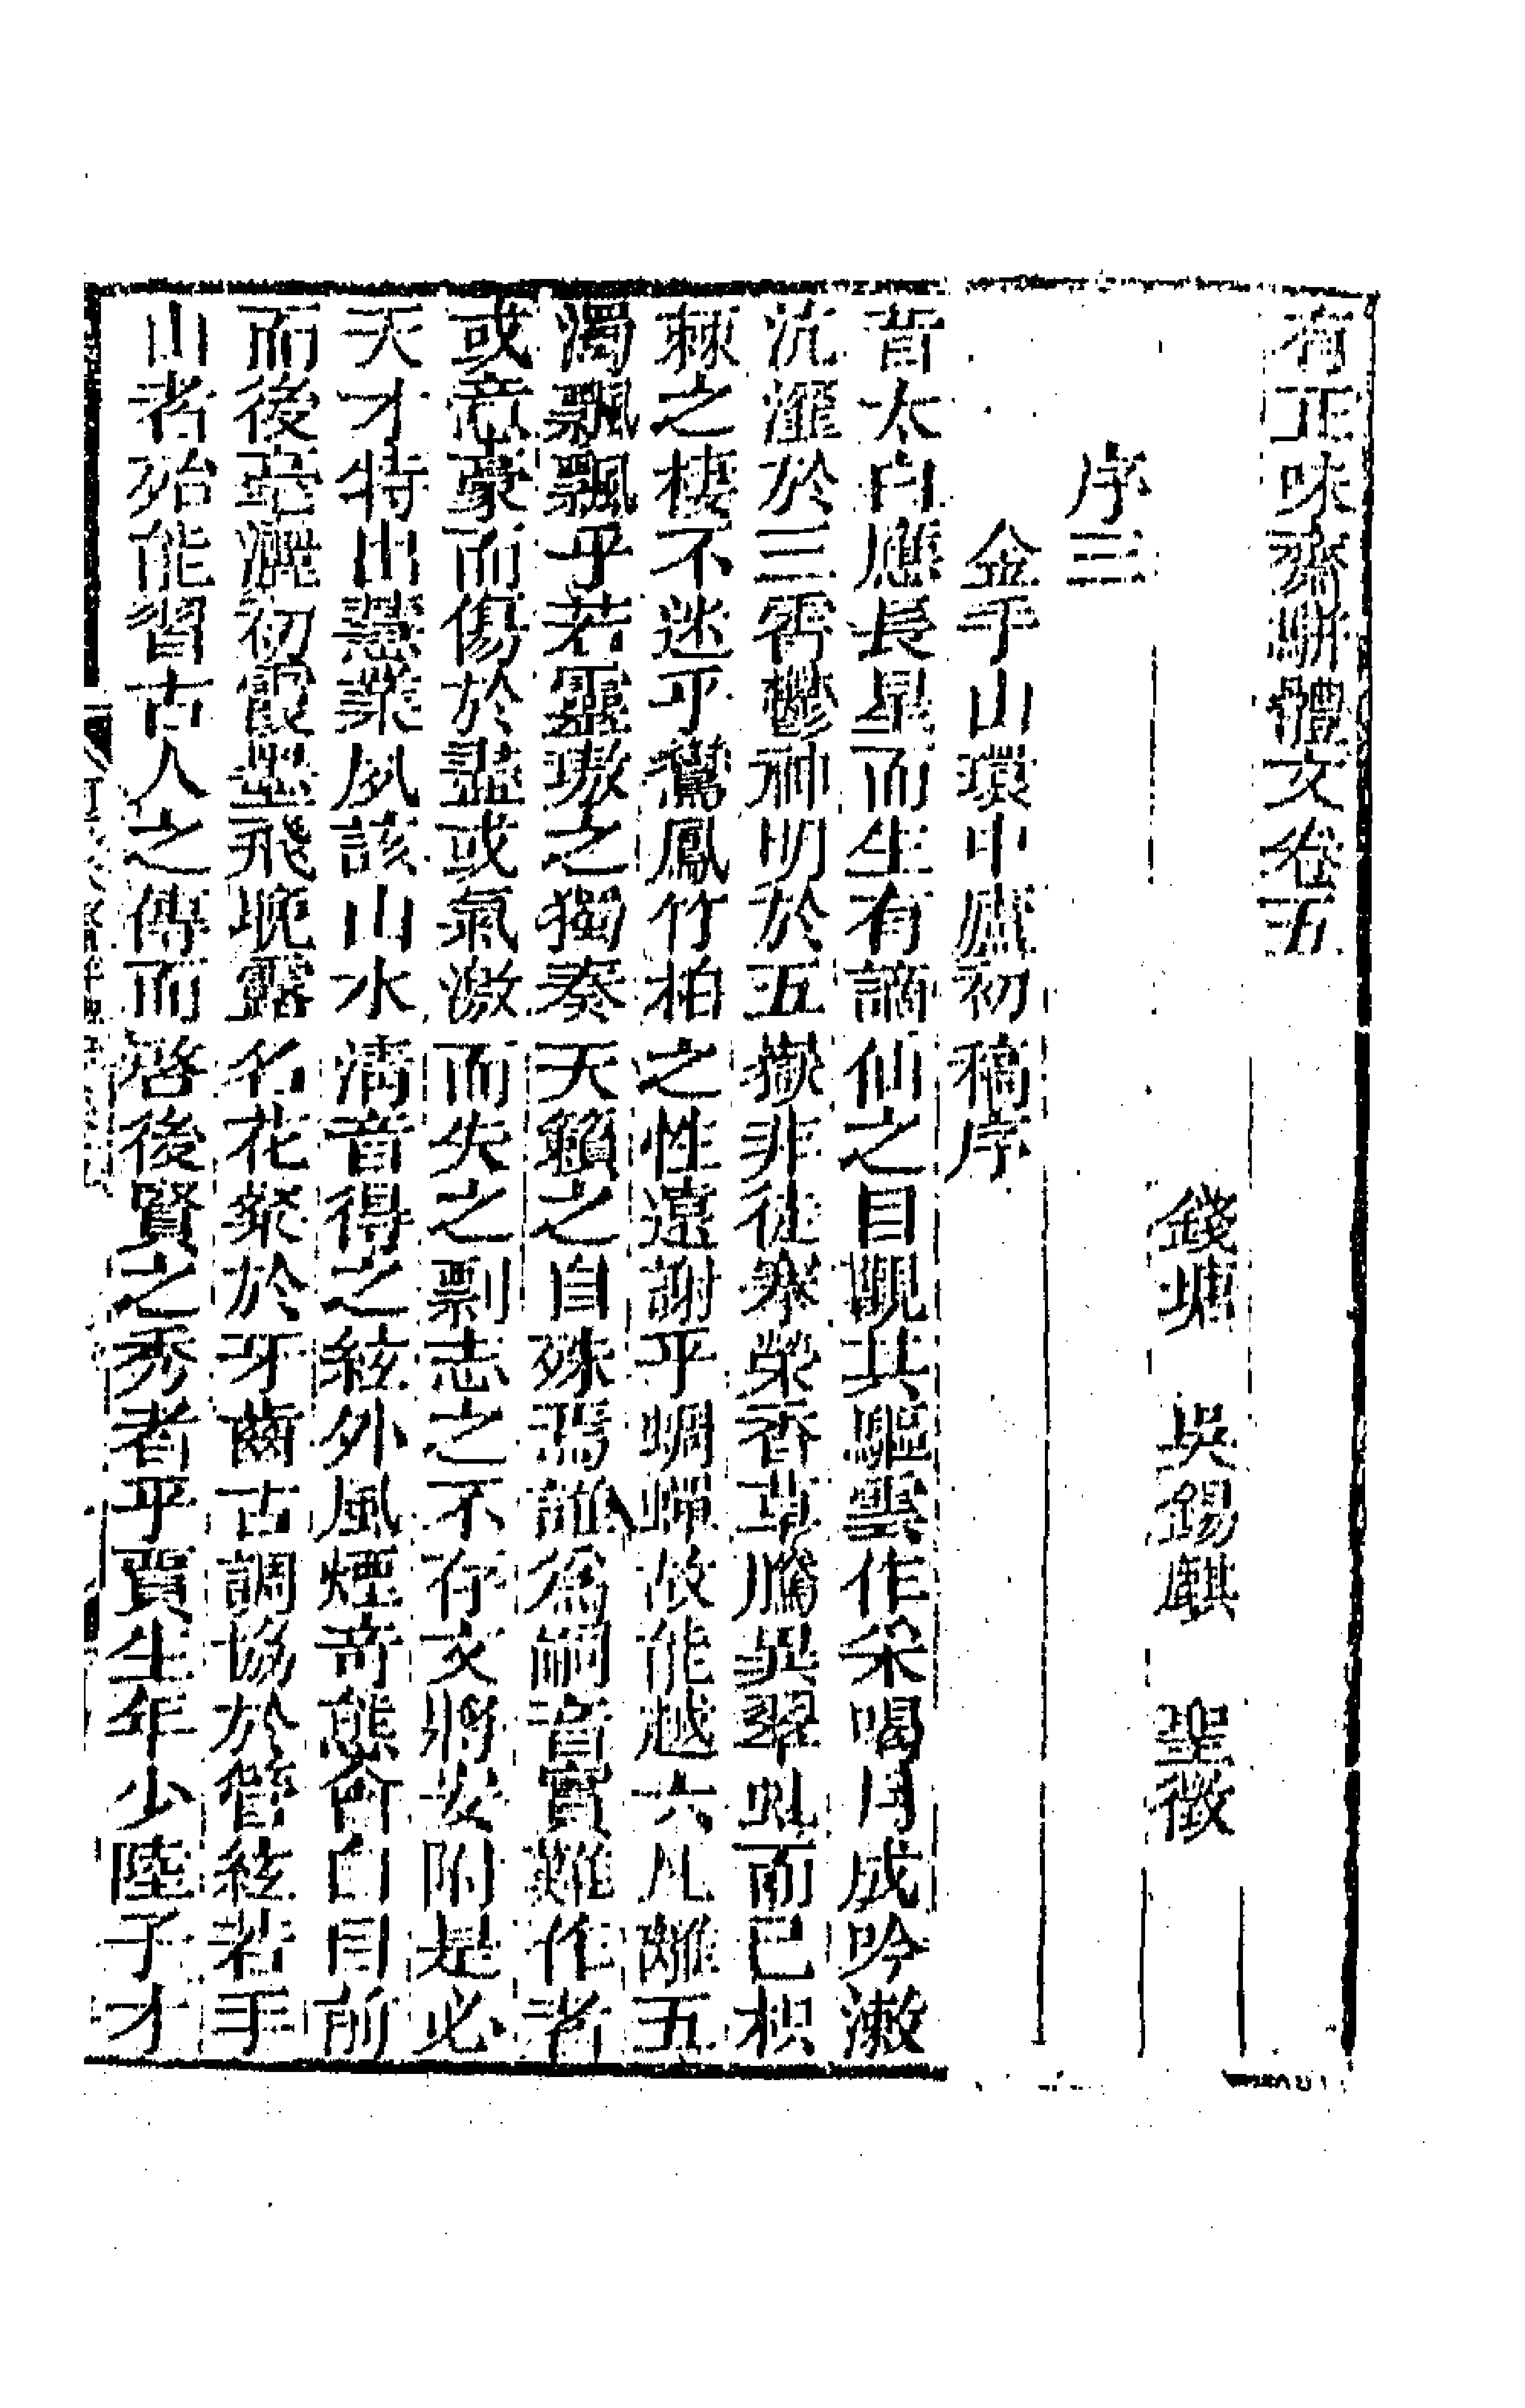 有正味齋駢體文卷五
錢塘 吳錫麒 聖徵
序三
金手山環中廬初稿序
昔太白應長星而生有謫仙之目觀其驅雲作采喝月成吟漱
沆瀣於三霄鬱神明於五嶽非徒搴榮香草騰異翠虬而已枳
棘之棲不迷乎鸞鳳竹柏之性遠謝乎蜩蟬故能越六凡離五
濁飄飄乎若靈璈之獨奏天籟之自殊焉雖爲嗣音實難作者
或意豪而傷於囂或氣激而失之剽志之不存文將安附是必
天才特出慧業夙該山水清音得之絃外風煙奇態奮自目前
而後毫灑初霞墨飛晚露名花粲於牙齒古調協於管絃若手
山者殆能習古人之傳而啓後賢之秀者乎賈生年少陸子才